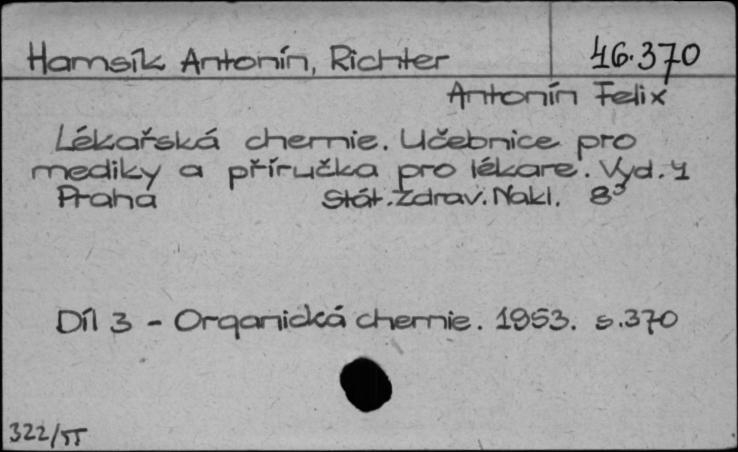 Hamsík Antonín, Richter 46.370
Antonín Felix
Lékařská chemie. Učebnice pro
mediky a příručka pro lékare. Vyd. 1
Praha Stát. Zdrav. Nakl. 8°
Díl 3 - Organická chemie. 1953. s. 370
322/55